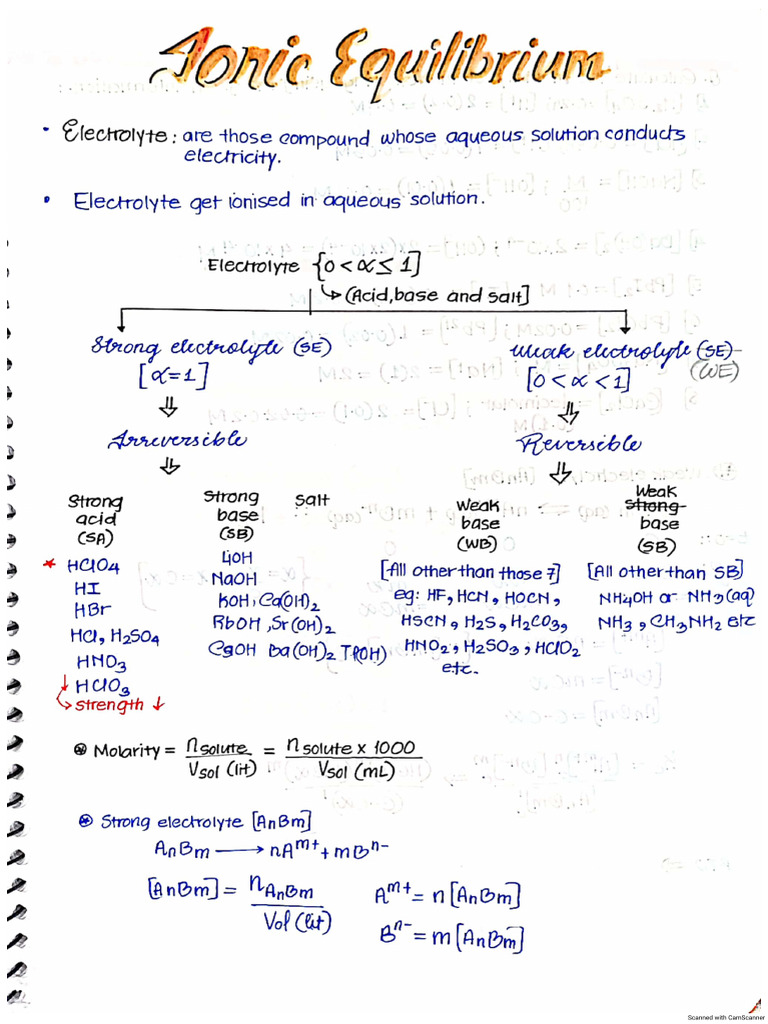 Ionic Equilibrium
• Electrolyte: are those compound whose aqueous solution conducts
electricity.
• Electrolyte get ionised in aqueous solution.
Electrolyte {0<α≤1]
↳ (Acid, base and salt]
Strong electrolyte (SE)
[α=1]
⇓
Irreversible
⇓
Weak electrolyte (SE)
(WE)
[0<α<1]
⇓
Reversible
⇓
Strong
acid
(SA)
* HClO4
HI
HBr
HCl, H2SO4
HNO3
↓ HClO3
↳ strength ↓
Strong
base
(SB)
LiOH
NaOH
KOH, Ca(OH)2
RbOH, Sr(OH)2
CsOH Ba(OH)2 Tl(OH)
Salt
Weak
base
(WB)
[All other than those 7]
eg: HF, HCN, HOCN,
HSCN, H2S, H2CO3,
HNO2, H2SO3, HClO2
etc.
Weak
strong
base
(SB)
[All other than SB]
NH4OH or NH3(aq)
NH3, CH3NH2 etc
⊛ Molarity = n solute / Vsol (lit) = n solute x 1000 / Vsol (mL)
⊛ Strong electrolyte [AnBm]
AnBm ⟶ nA^m+ + mB^n-
[AnBm] = n AnBm / Vol (lit)
A^m+ = n[AnBm]
B^n- = m[AnBm]
Scanned with CamScanner